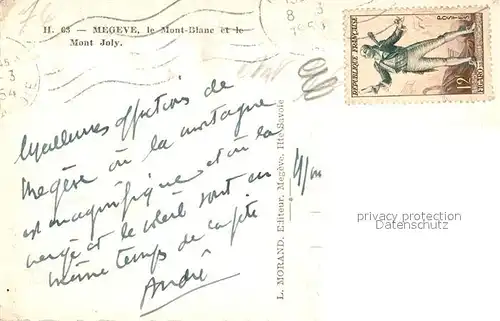 H. 63 — MEGEVE, le Mont-Blanc et le
Mont Joly.
8
3
3
54
RÉPUBLIQUE FRANÇAISE
POSTES
12F
FIGARO
Meilleures affections de
Megève où la montagne
est magnifique et où la
neige et le soleil sont en
même temps de la fête
André
L. MORAND, Editeur, Megève, Hte-Savoie
privacy protection